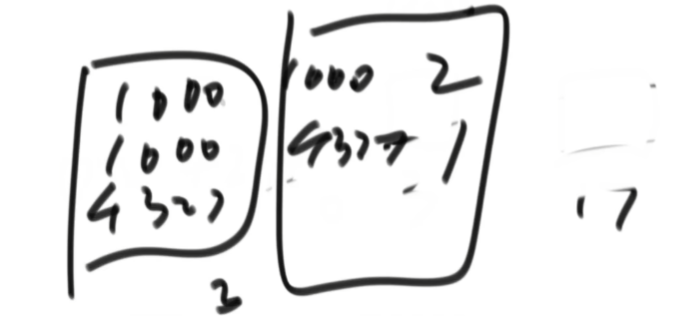 1000
1000
4327
3
1000 2
4327 1
17